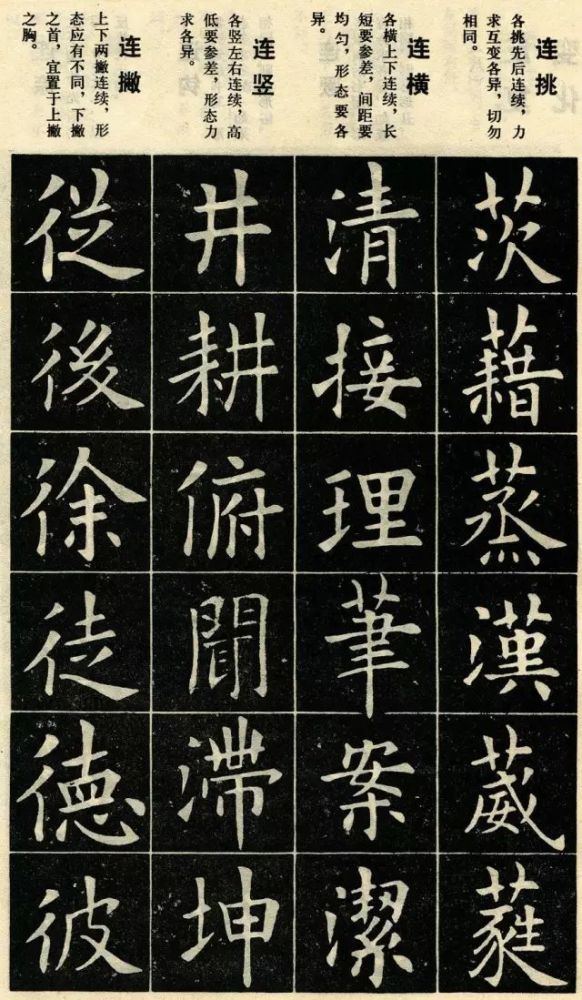 连挑
各挑先后连续，力
求互变各异，切勿
相同。
连横
各横上下连续，长
短要参差，间距要
均匀，形态要各
异。
连竖
各竖左右连续，高
低要参差，形态力
求各异。
连撇
上下两撇连续，形
态应有不同，下撇
之首，宜置于上撇
之胸。
茨藉蒸漢葳蕤
清接理筆案潔
井耕俯聞滯坤
従後徐徒德彼